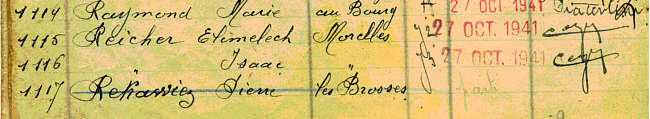 1114 Raymond Marie au Bourg 27 OCT 1941
1115 Reicher Etimelech Morelles 27 OCT. 1941
1116 " Isaac " 27 OCT. 1941
1117 Rekawiez Pierre les Brosses parti